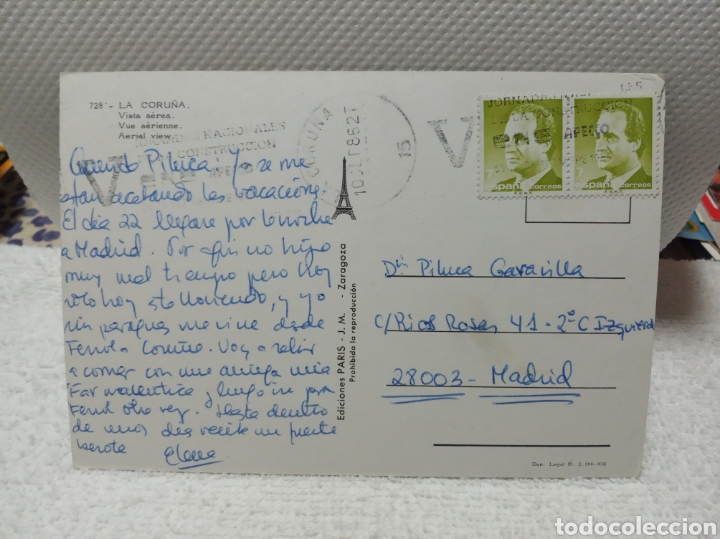 728 - LA CORUÑA.
Vista aérea.
Vue aérienne.
Aerial view.
JORNADAS NACIONALES
CONSTRUCCION
AFECTO
CORUÑA
10 SET 86 2T
15
JORNADAS
CONSTRUCCION
AFECTO
7
españa correos
7
españa correos
Querida Piluca: Ya se me
están acabando las vacaciones
El día 22 llegaré por la noche
a Madrid. Por fin no hizo
muy mal tiempo pero hoy
sólo hoy está lloviendo, y yo
sin paraguas me vine desde
Ferrol a Coruña. Voy a salir
a comer con una amiga mía
Farmacéutica y luego iré para
Ferrol otra vez. Hasta dentro
de unos días recibe un fuerte
besote Elena
Ediciones PARIS - J.M. - Zaragoza
Prohibida la reproducción
Piluca Garavilla
C/ Rios Rosas 41 - 2º C Izquierda
28003 - Madrid
Dep. Legal
todocoleccion